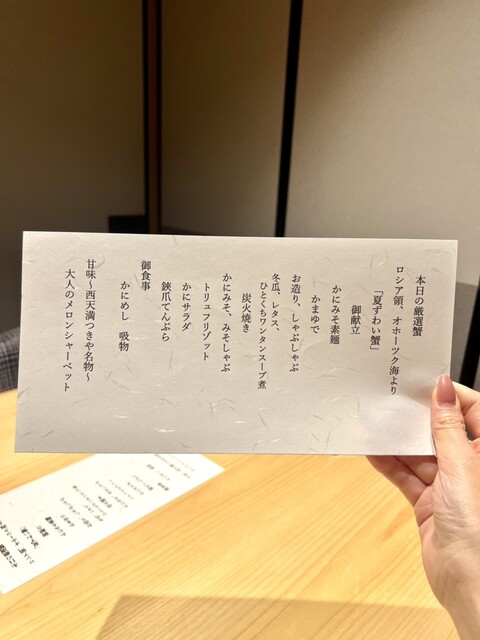 本日の厳選蟹
ロシア領、オホーツク海より
「夏ずわい蟹」
御献立
かにみそ素麺
かまゆで
お造り、しゃぶしゃぶ
冬瓜、レタス、
ひとくちワンタンスープ煮
炭火焼き
かにみそ、みそしゃぶ
トリュフリゾット
かにサラダ
鋏爪てんぷら
御食事
かにめし 吸物
甘味〜西天満つきや名物〜
大人のメロンシャーベット